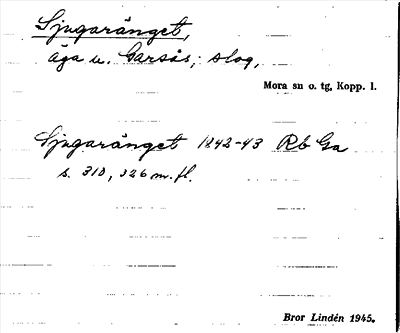 Sjugaränget,
äga u. Garsås; slog,
Mora sn o. tg, Kopp. l.
Sjugaränget 1842-43 Rb Ga
s. 310, 326 m. fl.
Bror Lindén 1945.